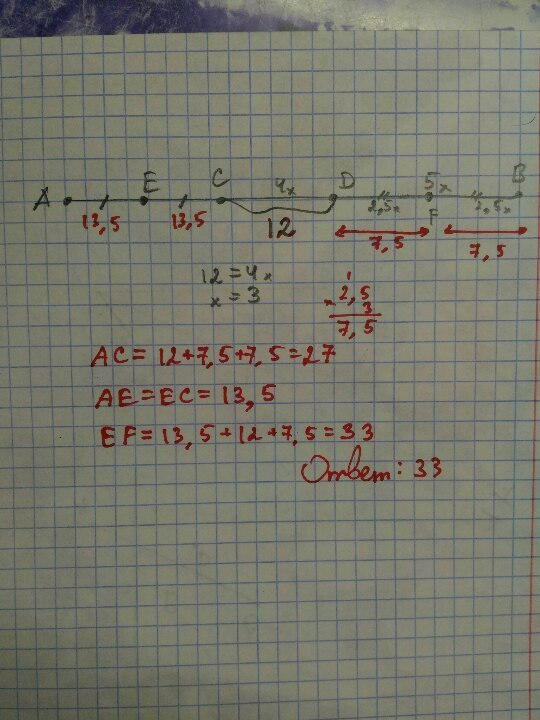 A E C 4x D 5x B
13,5 13,5 12 2,5x F 2,5x
7,5 7,5
12 = 4x
x = 3
1
× 2,5
3
7,5
AC = 12+7,5+7,5 = 27
AE = EC = 13,5
EF = 13,5 + 12 + 7,5 = 33
Ответ: 33